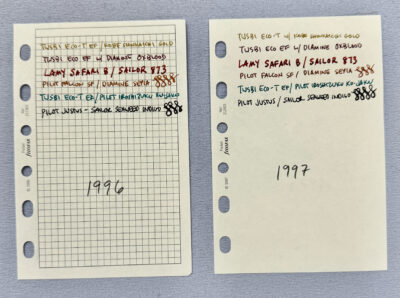 TWSBI ECO-T EF / KOBE SHINKAICHI GOLD
TWSBI ECO EF W/ DIAMINE OXBLOOD
LAMY SAFARI B / SAILOR 873
PILOT FALCON SF / DIAMINE SEPIA
TWSBI ECO-T EF / PILOT IROSHIZUKU KU-JAKU
PILOT JUSTUS - SAILOR SEAWEED INDIGO
1996
filofax
TWSBI ECO-T W/ KOBE SHINKAICHI GOLD
TWSBI ECO EF W/ DIAMINE OXBLOOD
LAMY SAFARI B / SAILOR 873
PILOT FALCON SF / DIAMINE SEPIA
TWSBI ECO-T EF / PILOT IROSHIZUKU KU-JAKU
PILOT JUSTUS / SAILOR SEAWEED INDIGO
1997
filofax